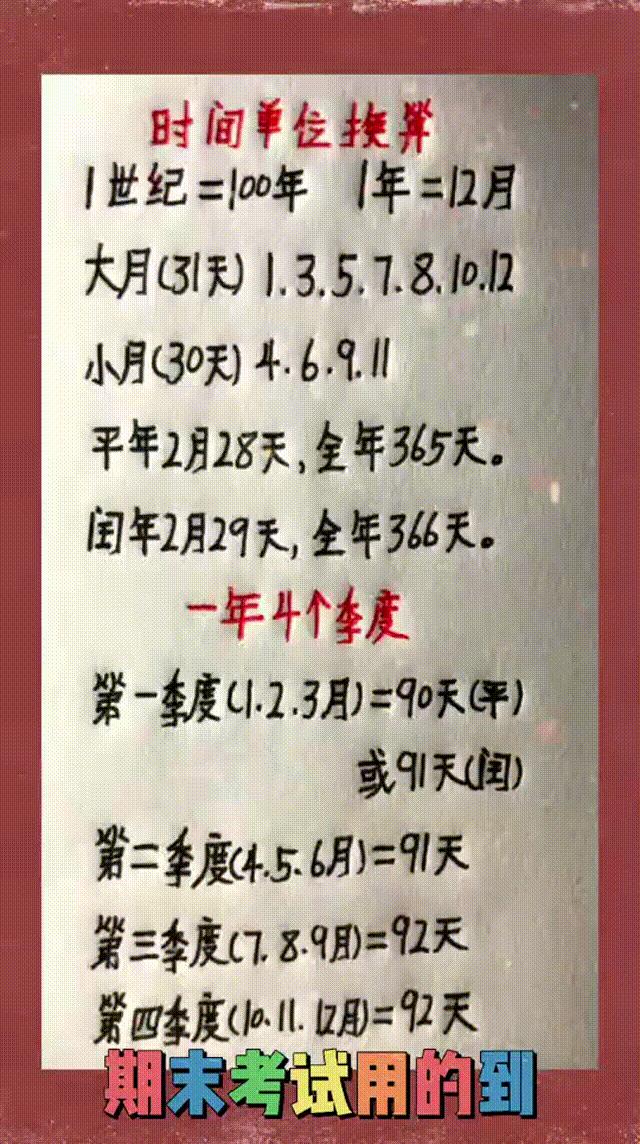 时间单位换算
1世纪=100年 1年=12月
大月(31天) 1.3.5.7.8.10.12
小月(30天) 4.6.9.11
平年2月28天,全年365天。
闰年2月29天,全年366天。
一年4个季度
第一季度(1.2.3月)=90天(平)
或91天(闰)
第二季度(4.5.6月)=91天
第三季度(7.8.9月)=92天
第四季度(10.11.12月)=92天
期末考试用的到